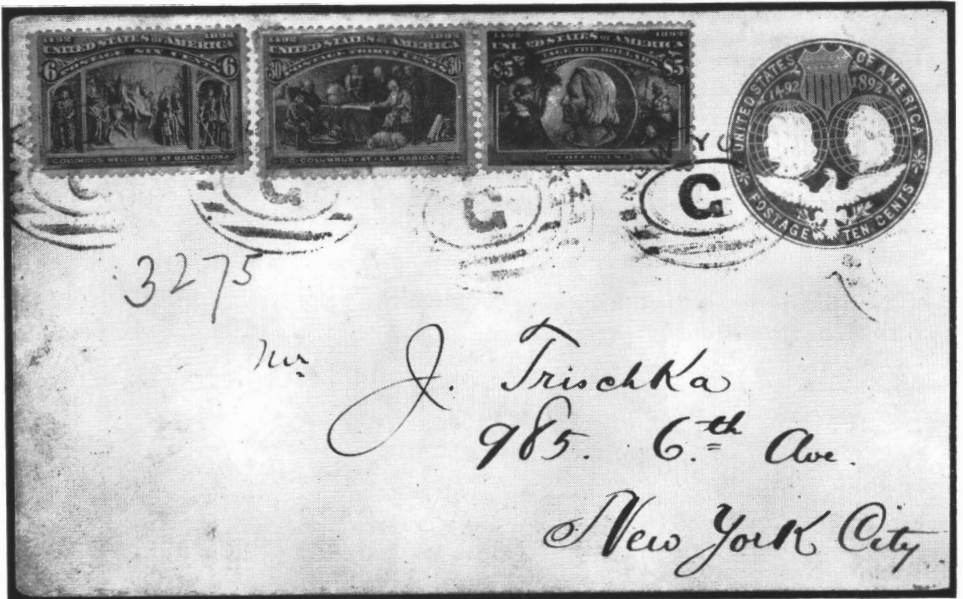 1492 1892
UNITED STATES OF AMERICA
POSTAGE SIX CENTS
6 6
COLUMBUS WELCOMED AT BARCELONA
1492 1892
UNITED STATES OF AMERICA
POSTAGE THIRTY CENTS
30 30
COLUMBUS AT LA RABIDA
1492 1892
UNITED STATES OF AMERICA
POSTAGE FIVE DOLLARS
$5 $5
COLUMBUS
UNITED STATES OF AMERICA
1492 1892
POSTAGE TEN CENTS
G G G G
3275
Mr.
J. Trischka
985. 6.th Ave.
New York City